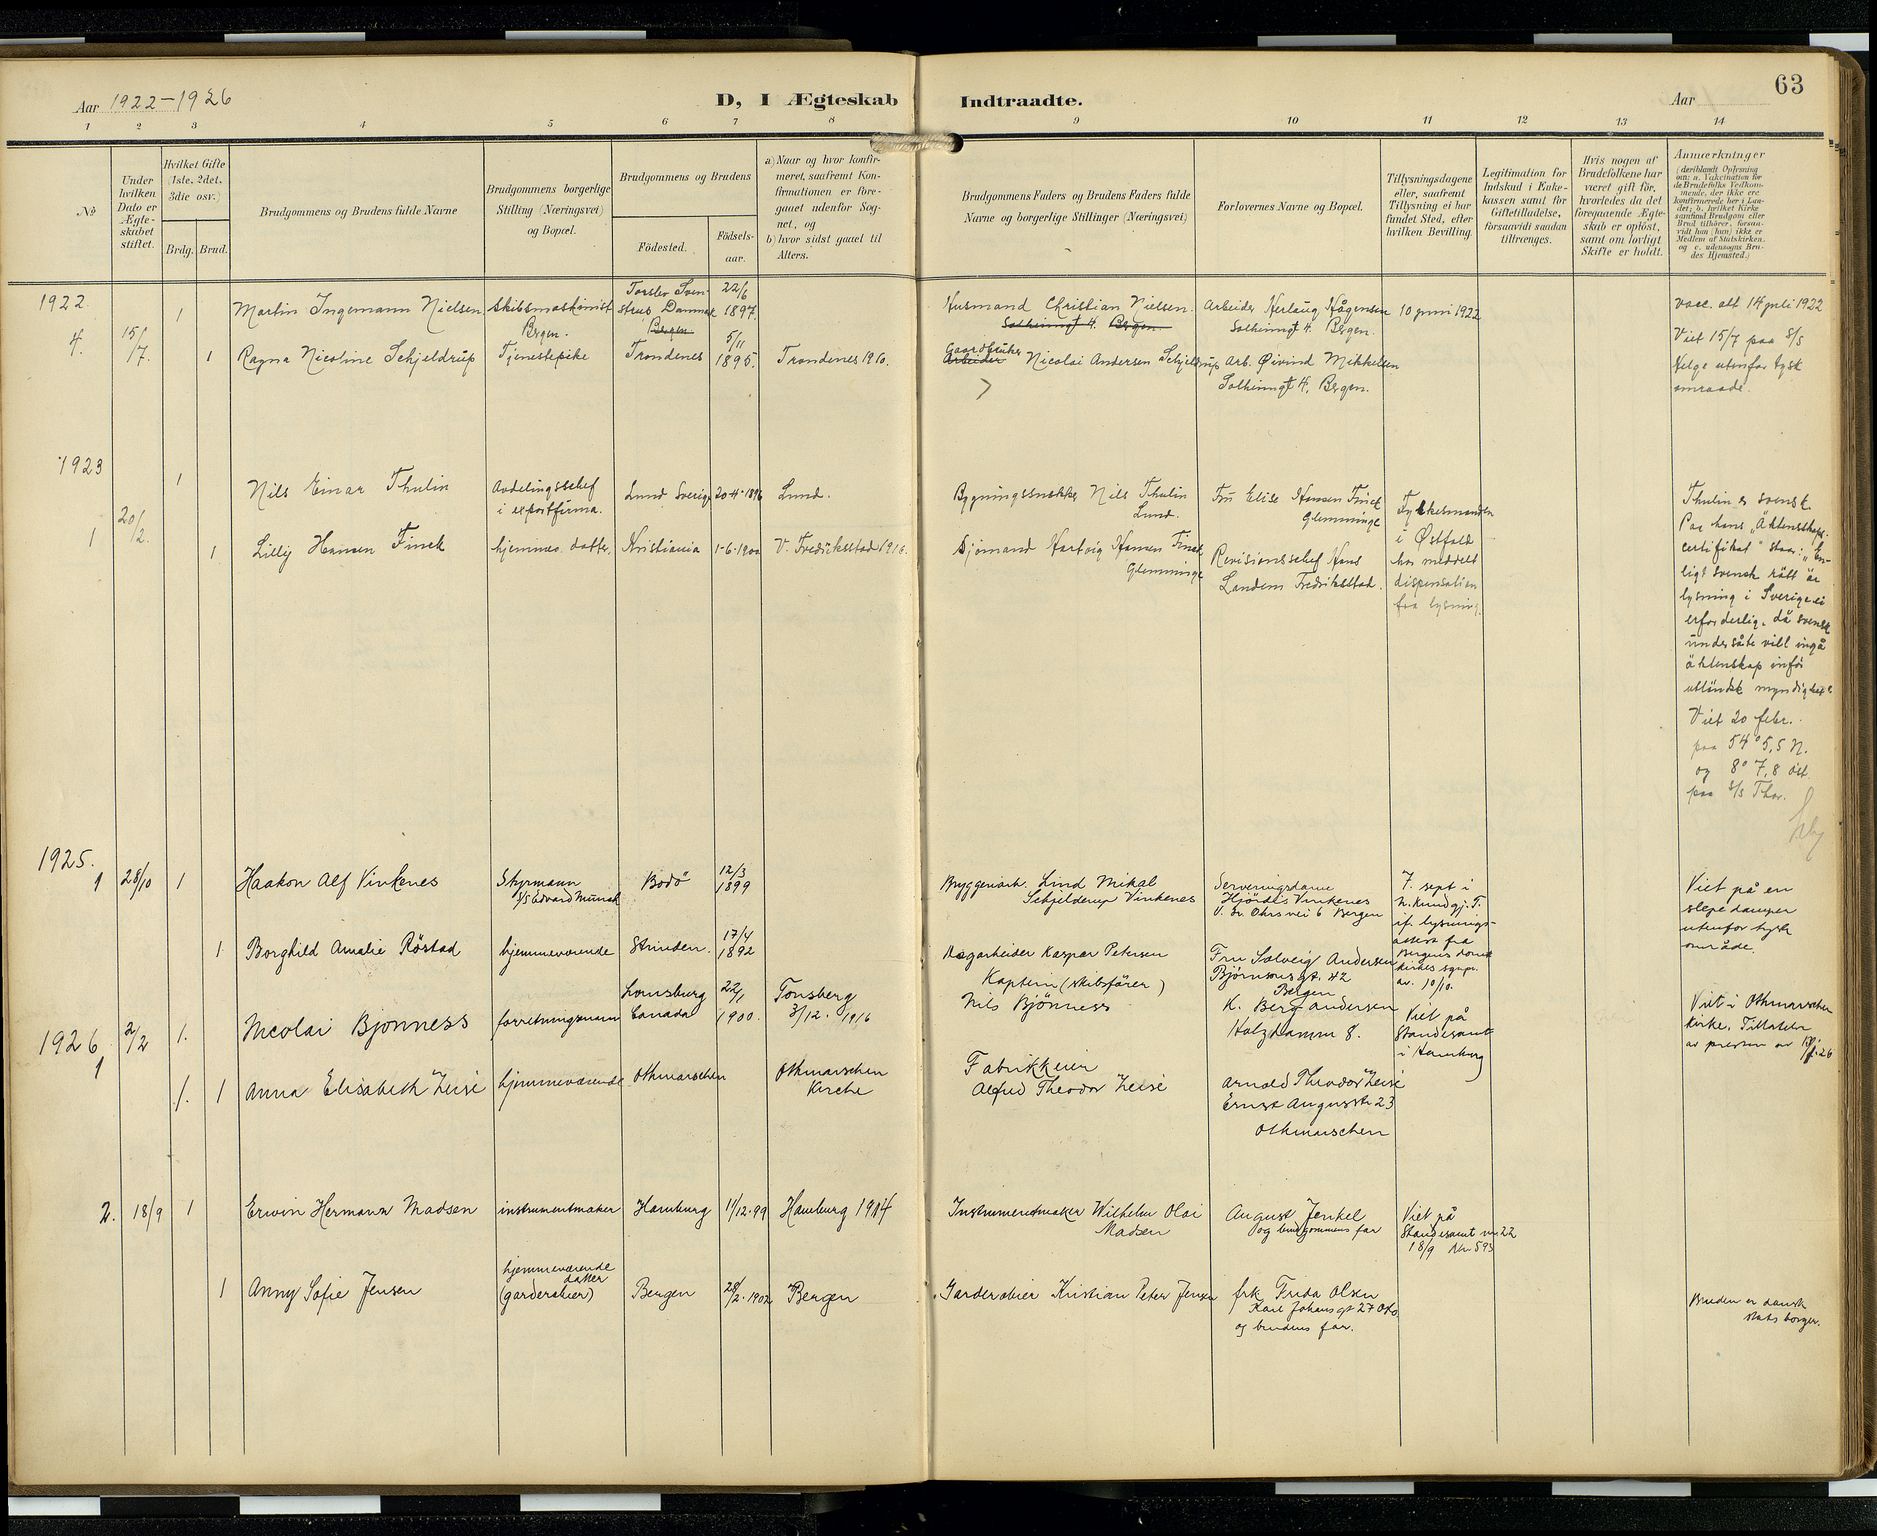 63
Aar 1922-1926
D, I Ægteskab Indtraadte.
Aar
1 2 3 4 5 6 7 8 9 10 11 12 13 14
No
Under hvilken Dato er Ægteskabet stiftet.
Hvilket Gifte (1ste, 2det, 3die osv.)
Brdg. Brud.
Brudgommens og Brudens fulde Navne
Brudgommens borgerlige Stilling (Næringsvei) og Bopæl.
Brudgommens og Brudens
Födested.
Födsels-aar.
a) Naar og hvor konfir-
meret, saafremt Kon-
firmationen er fore-
gaaet udenfor Sog-
net, og
b) hvor sidst gaaet til
Alters.
Brudgommens Faders og Brudens Faders fulde
Navne og borgerlige Stillinger (Næringsvei)
Forlovernes Navne og Bopæl.
Tillysningsdagene
eller, saafremt
Tillysning ei har
fundet Sted, efter
hvilken Bevilling
Legitimation for
Indskud i Enke-
kassen samt for
Giftetilladelse,
forsaavidt saadan
tiltrænges.
Hvis nogen af
Brudefolkene har
været gift för,
hvorledes da det
foregaaende Ægte-
skab er oplöst,
samt om lovligt
Skifte er holdt.
Anmærkninger
(deriblandt Oplysning
om: a. Vakcination for
de Brudefolks Vedkom-
mende, der ikke ere
konfirmerede her i Lan-
det; b. hvilket Kirke
samfund Brudgom eller
Brud tilhörer, forsaa-
vidt han (hun) ikke er
Medlem af Statskirken,
og c. udensogns Bru-
des Hjemsted.)
1922
4. 15/7
1 Martin Ingemann Nielsen skibsmaskinist Bergen. Torslev Sven-strup Danmark Bergen 22/6 1897.
Husmand Christian Nielsen. Solheimsgt 4. Bergen. Arbeider Herlaug Hågensen Solheimsgt 4. Bergen. 10 juni 1922
vacc. att 14 juli 1922
Viet 15/7 paa S/S
Helge utenfor tysk
omraade.
1 Ragna Nicoline Schjeldrup Tjenestepike Trondenes 5/11 1895. Trondenes 1910.
Gaardbruker Arbeider Nicolai Andersen Schjeldrup Arb. Øivind Mikkelsen
Solheimsgt 4, Bergen.
1923
1 20/2.
1 Nils Einar Thulin Avdelingschef i exportfirma. Lund Sverige 20-4-1896 Lund.
Bygningssnekker Nils Thulin Lund. Fru Elise Hansen Finck Glemminge
Fylkesmanden
i Østfold
har meddelt
dispensation
fra lysning.
1 Lilly Hansen Finck hjemmev. datter. Kristiania 1-6-1900 V. Fredrikstad 1916.
Sjømand Hartvig Hansen Finck Glemminge Revisionschef Hans
Landem Fredrikstad.
Thulin er svensk.
Paa hans "Äktenskaps-
certifikat" staar: "En-
ligt svensk rätt är
lysning i Sverige ei
erforderlig, då svensk
undersåte vill ingå
äktenskap inför
utländsk myndighet".
Viet 20 febr.
paa 54° 5,5 N.
og 8° 7,8 öst
paa S/S Thor.
1925.
1 28/10 1 Haakon Alf Vinkenes Styrmann S/S Edvard Munch Bodö 12/3 1899
Bryggeriarb. Lind Mikal Schjelderup Vinkenes
Serveringsdame
Hjördis Vinkenes
Bergen
7. sept i
if. lysnings-
attest fra
Bergens domkirkes sgnpr.
av. 10/10.
Viet på en
slepedamper
utenfor tysk
område.
1 Borghild Amalie Röstad hjemmeværende Strinden. 17/4 1892
Kaspar Petersen Fru Solveig Andersen
Bjørnsonsgt. 42
Bergen
1926
1 2/2 1. Nicolai Bjönness forretningsmann Canada 22/1 1900. Tonsberg 3/12. 1916
Kaptein (skibsfører)
Nils Bjönness K. Berg Andersen
Holzdamm 8.
Viet på
Standesamt
i Hamburg
Viet i Othmarschen
Kirke.
1 Anna Elisabeth Zeise hjemmeværende Othmarschen Othmarschen Kirche
Fabrikkeier
Alfred Theodor Zeise Arnold Theodor Zeise
Ernst Auguststr 23
Othmarschen
2. 18/9 1 Erwin Hermann Madsen instrumentmaker Hamburg 11/12.99 Hamburg 1914
Instrumentmaker Wilhelm Olai Madsen August Jenkel
og brudgommens far
Viet på
Standesamt nr 22
18/9 Nr 593
1 Anny Sofie Jensen hjemmeværende datter (garderobier) Bergen 28/2.1902 Bergen
Garderobier Kristian Peter Jensen frk Frida Olsen
Karl Johans gt 27 Oslo
og brudens far.
Bruden er dansk
statsborger.